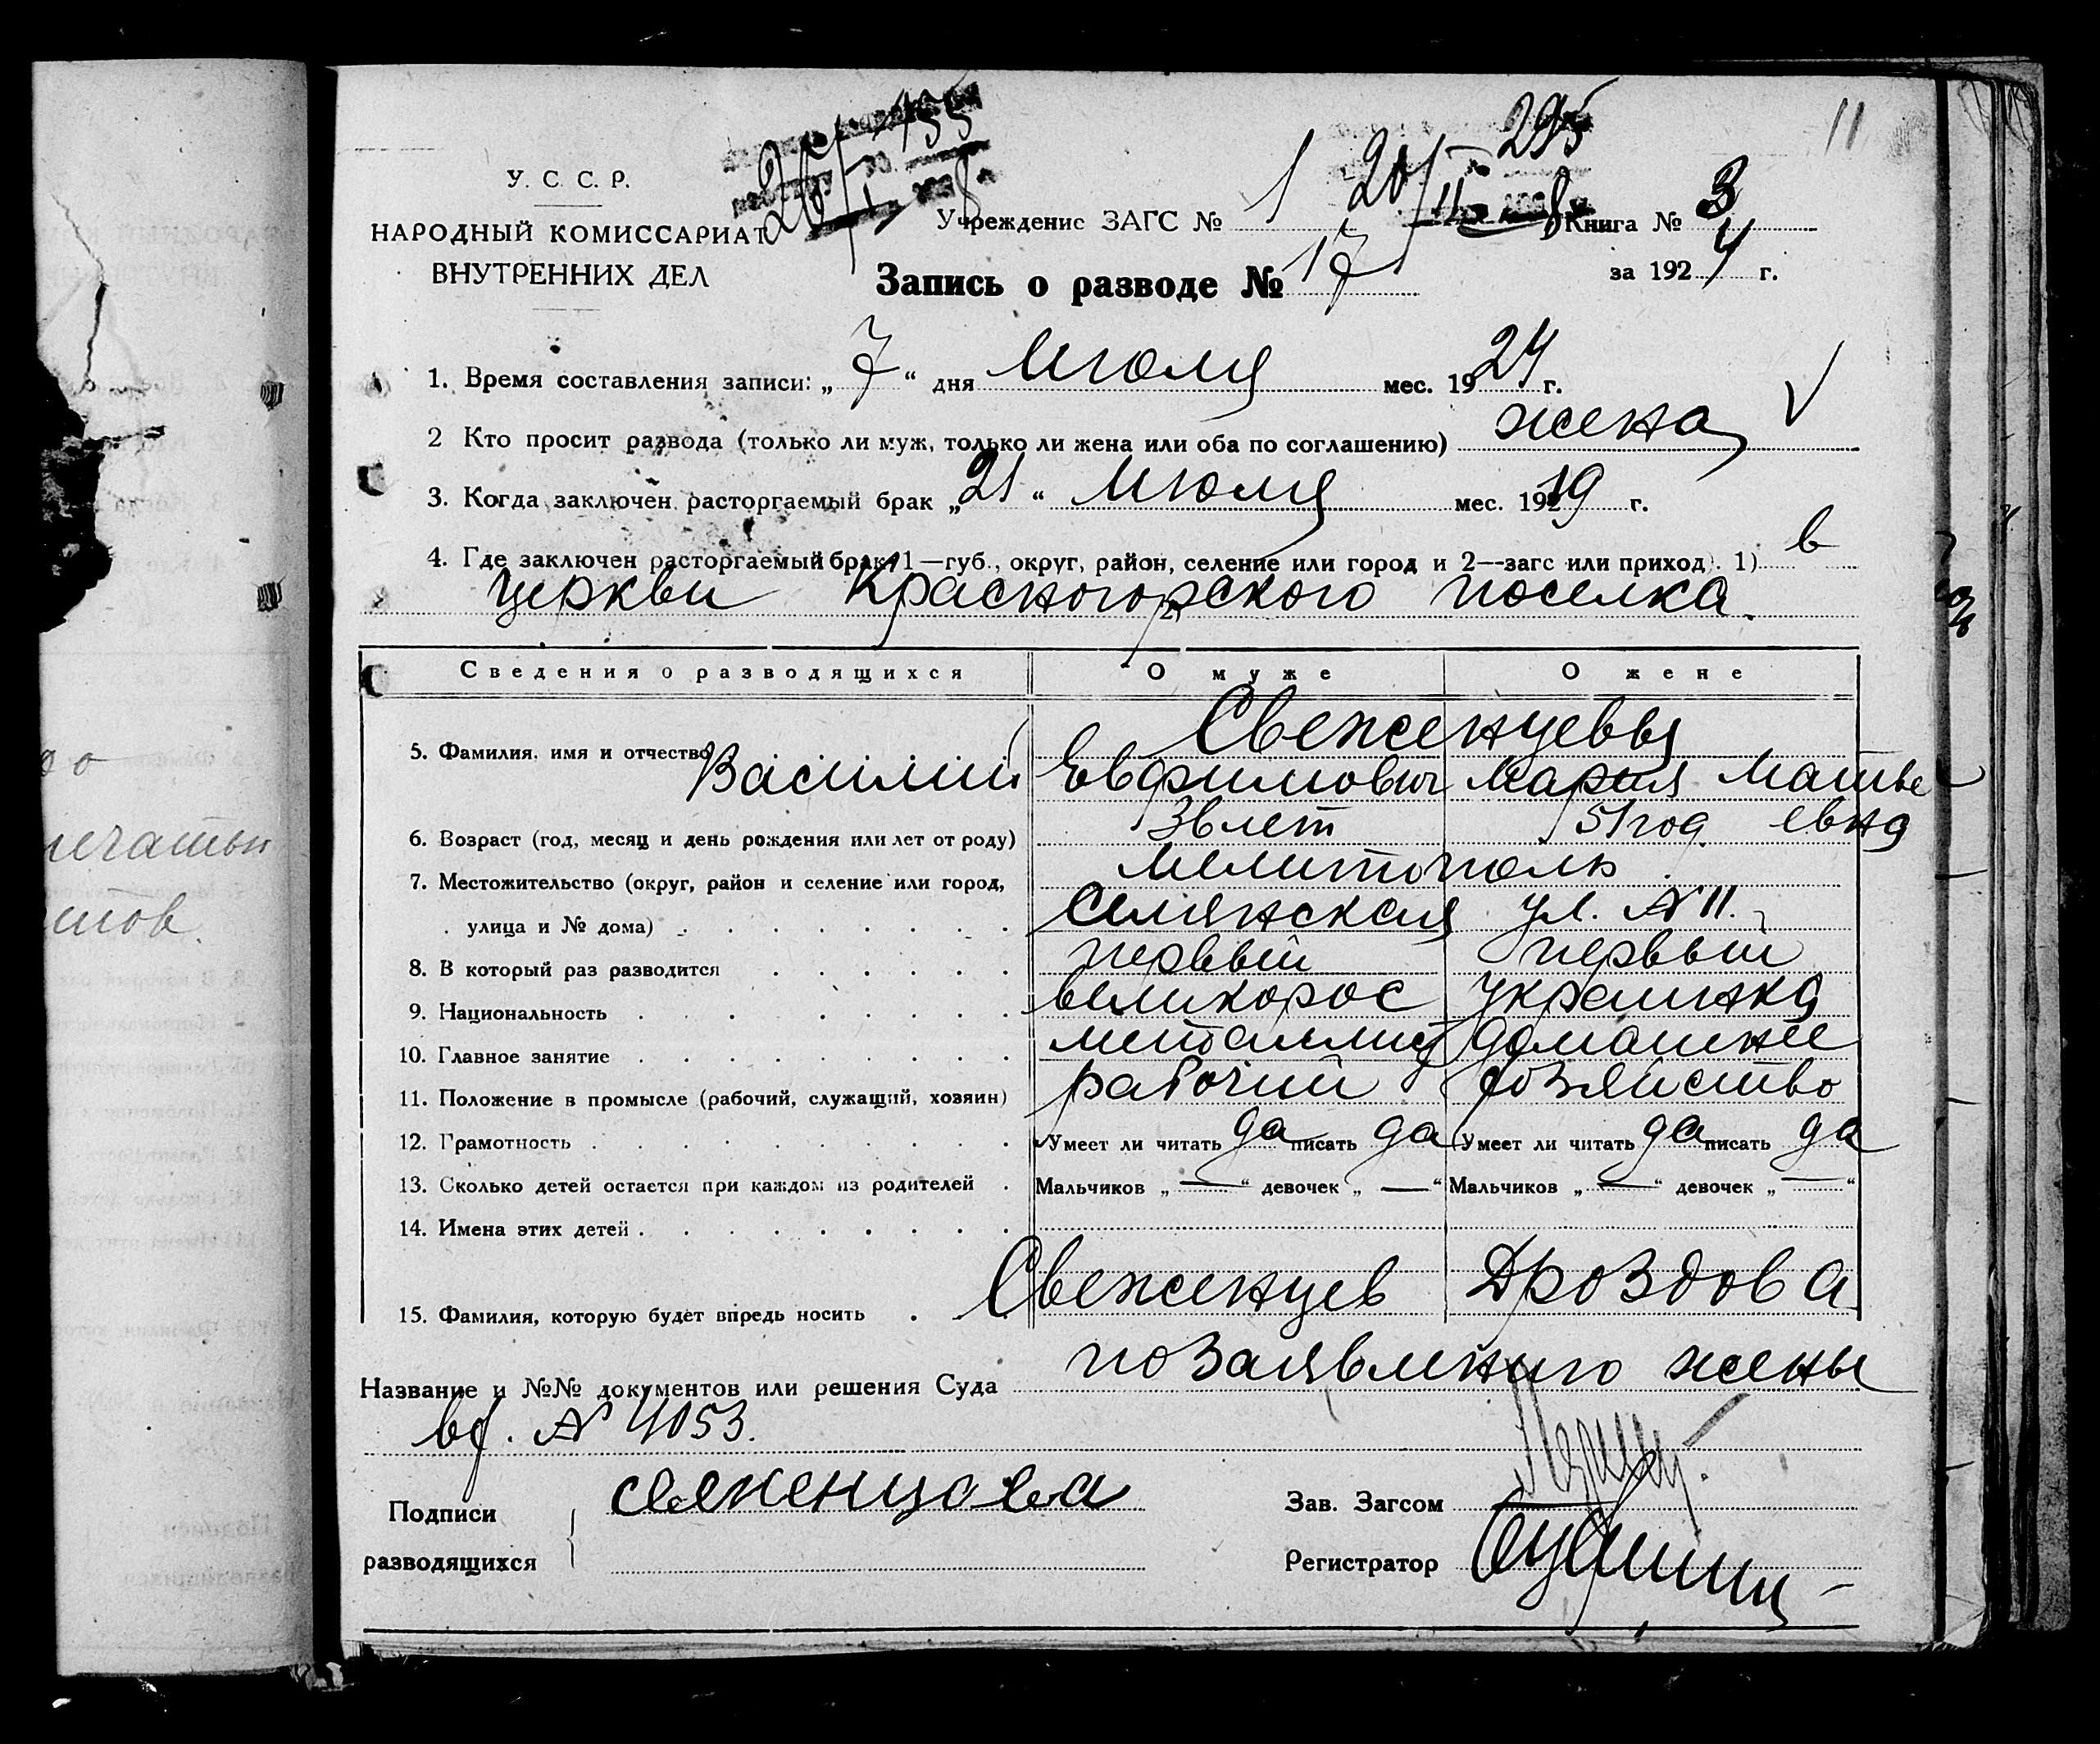 11
У. С. С. Р.
НАРОДНЫЙ КОМИССАРИАТ
ВНУТРЕННИХ ДЕЛ
Учреждение ЗАГС № 1
Книга № 3
Запись о разводе № 17
за 1924 г.
1. Время составления записи: „7“ дня Июля мес. 1924 г.
2 Кто просит развода (только ли муж, только ли жена или оба по соглашению) жена
3. Когда заключен расторгаемый брак „21“ Июля мес. 1919 г.
4. Где заключен расторгаемый брак (1—губ., округ, район, селение или город и 2—загс или приход). 1) в
церкви Красногорского поселка.
Сведения о разводящихся О муже О жене
Свеженцевы
5. Фамилия, имя и отчество Василий Евфимович Мария Матве
евна
6. Возраст (год, месяц и день рождения или лет от роду) 36 лет 51 год
7. Местожительство (округ, район и селение или город, Мелитополь
улица и № дома) ул. № 11.
8. В который раз разводится первый первый
9. Национальность великорос украинка
10. Главное занятие металлист домашнее
11. Положение в промысле (рабочий, служащий, хозяин) рабочий хозяйство
12. Грамотность Умеет ли читать да писать да Умеет ли читать да писать да
13. Сколько детей остается при каждом из родителей Мальчиков „—“ девочек „—“ Мальчиков „—“ девочек „—“
14. Имена этих детей
15. Фамилия, которую будет впредь носить Свеженцев Дроздова
Название и №№ документов или решения Суда по заявлению жены
вх. № 4053.
Подписи
разводящихся
Зав. Загсом
Регистратор